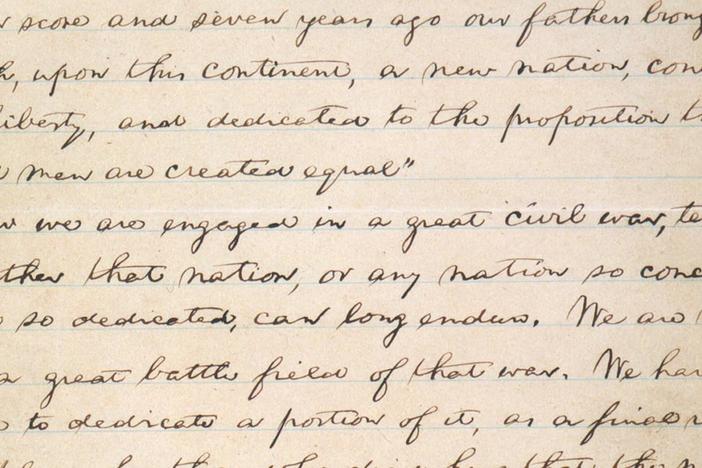 score and seven years ago our fathers
upon this continent, a new nation,
and dedicated to the proposition
men are created equal"
we are engaged in a great civil war,
that nation, or any nation so
so dedicated, can long endure. We are
great battle field of that war. We
to dedicate a portion of it, as a final